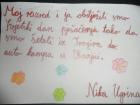 Moj razred i ja obilježili smo
Svjetski dan pješačenja tako da
smo šetali iz Zmajne do
auto kampa u Zmajni.
Nika